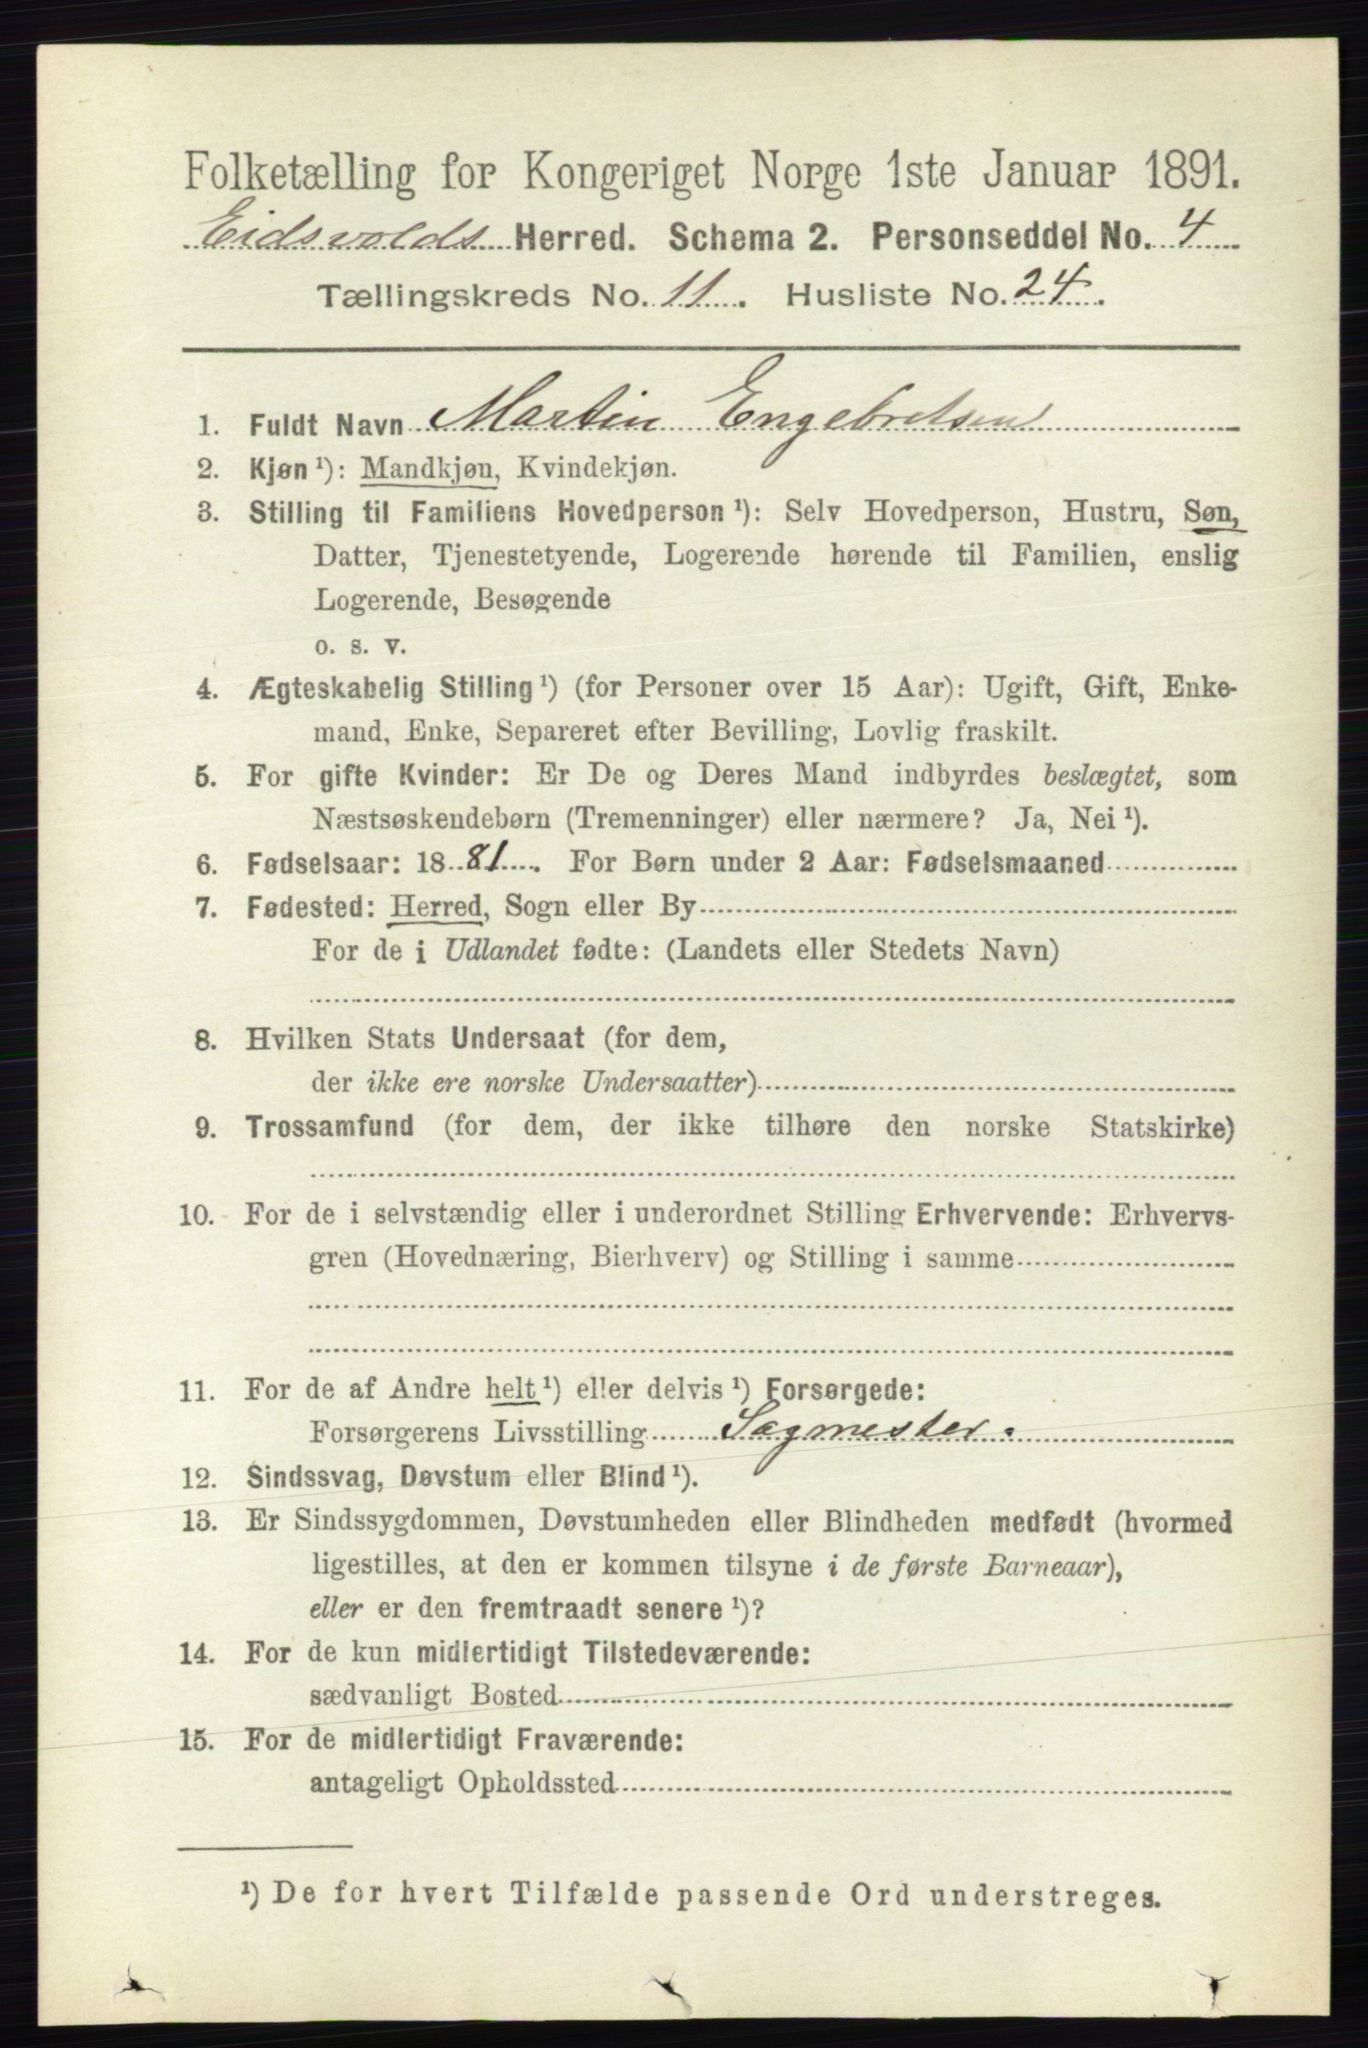 Folketælling for Kongeriget Norge 1ste Januar 1891.
Eidsvolds Herred. Schema 2. Personseddel No. 4
Tællingskreds No. 11. Husliste No. 24.
1. Fuldt Navn Martin Engebretsen
2. Kjøn ¹): Mandkjøn, Kvindekjøn.
3. Stilling til Familiens Hovedperson ¹): Selv Hovedperson, Hustru, Søn,
Datter, Tjenestetyende, Logerende hørende til Familien, enslig
Logerende, Besøgende
o. s. v.
4. Ægteskabelig Stilling ¹) (for Personer over 15 Aar): Ugift, Gift, Enke-
mand, Enke, Separeret efter Bevilling, Lovlig fraskilt.
5. For gifte Kvinder: Er De og Deres Mand indbyrdes beslægtet, som
Næstsøskendebørn (Tremenninger) eller nærmere? Ja, Nei ¹).
6. Fødselsaar: 1881. For Børn under 2 Aar: Fødselsmaaned
7. Fødested: Herred, Sogn eller By
For de i Udlandet fødte: (Landets eller Stedets Navn)
8. Hvilken Stats Undersaat (for dem,
der ikke ere norske Undersaatter)
9. Trossamfund (for dem, der ikke tilhøre den norske Statskirke)
10. For de i selvstændig eller i underordnet Stilling Erhvervende: Erhvervs-
gren (Hovednæring, Bierhverv) og Stilling i samme
11. For de af Andre helt ¹) eller delvis ¹) Forsørgede:
Forsørgerens Livsstilling Sagmester.
12. Sindssvag, Døvstum eller Blind ¹).
13. Er Sindssygdommen, Døvstumheden eller Blindheden medfødt (hvormed
ligestilles, at den er kommen tilsyne i de første Barneaar),
eller er den fremtraadt senere ¹)?
14. For de kun midlertidigt Tilstedeværende:
sædvanligt Bosted
15. For de midlertidigt Fraværende:
antageligt Opholdssted
¹) De for hvert Tilfælde passende Ord understreges.